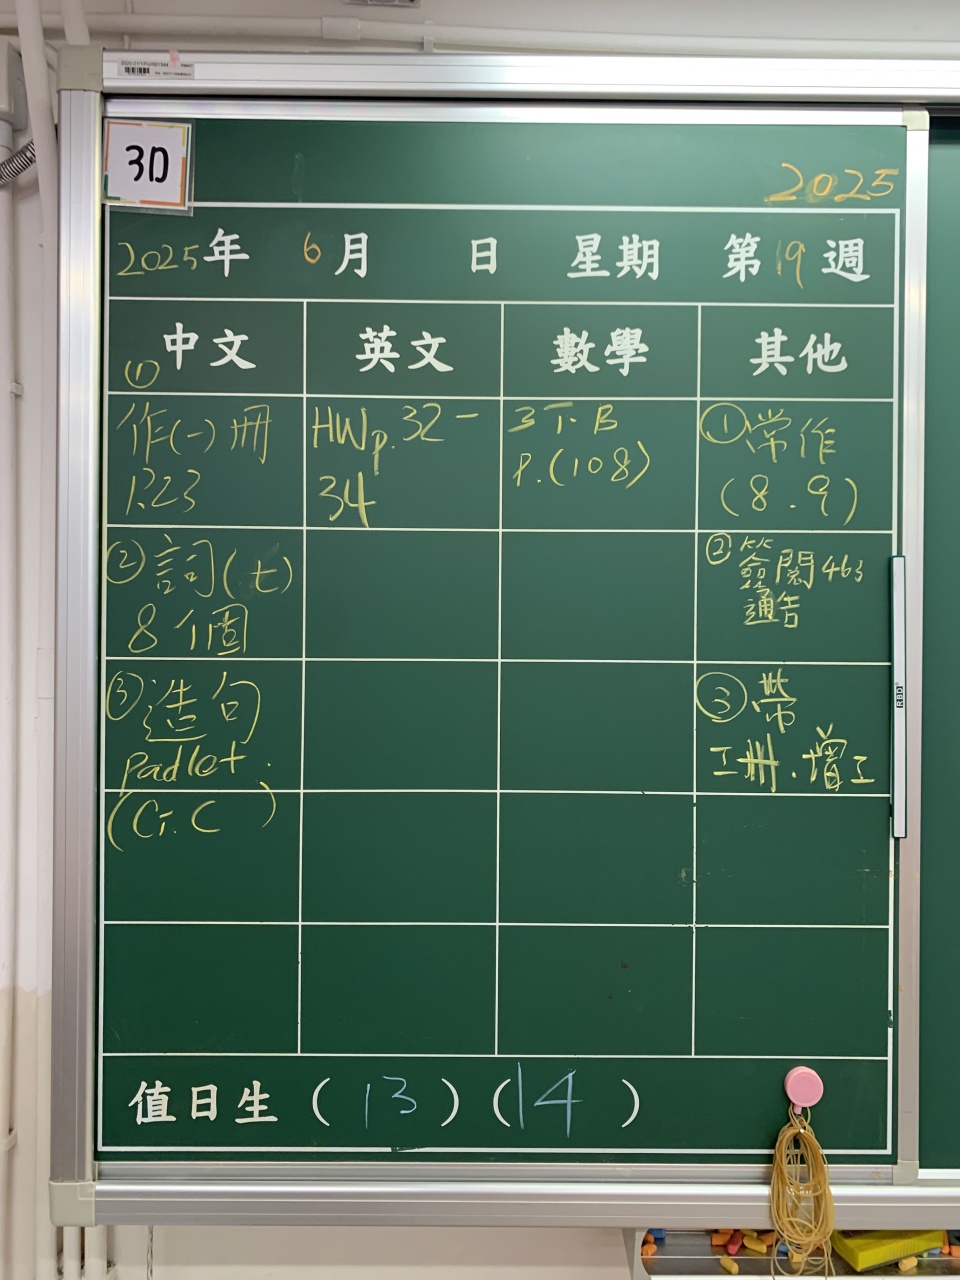 3D
2025
2025年 6月 日 星期 第19週
中文 英文 數學 其他
①
作(一)冊
P.23
HWp.32-
34
3下B
P.(108)
①常作
(8.9)
②詞(七)
8個
②簽閱463
通告
③造句
padlet.
(G.C )
③帶
工冊.增工
值日生( 13 )( 14 )
RBD